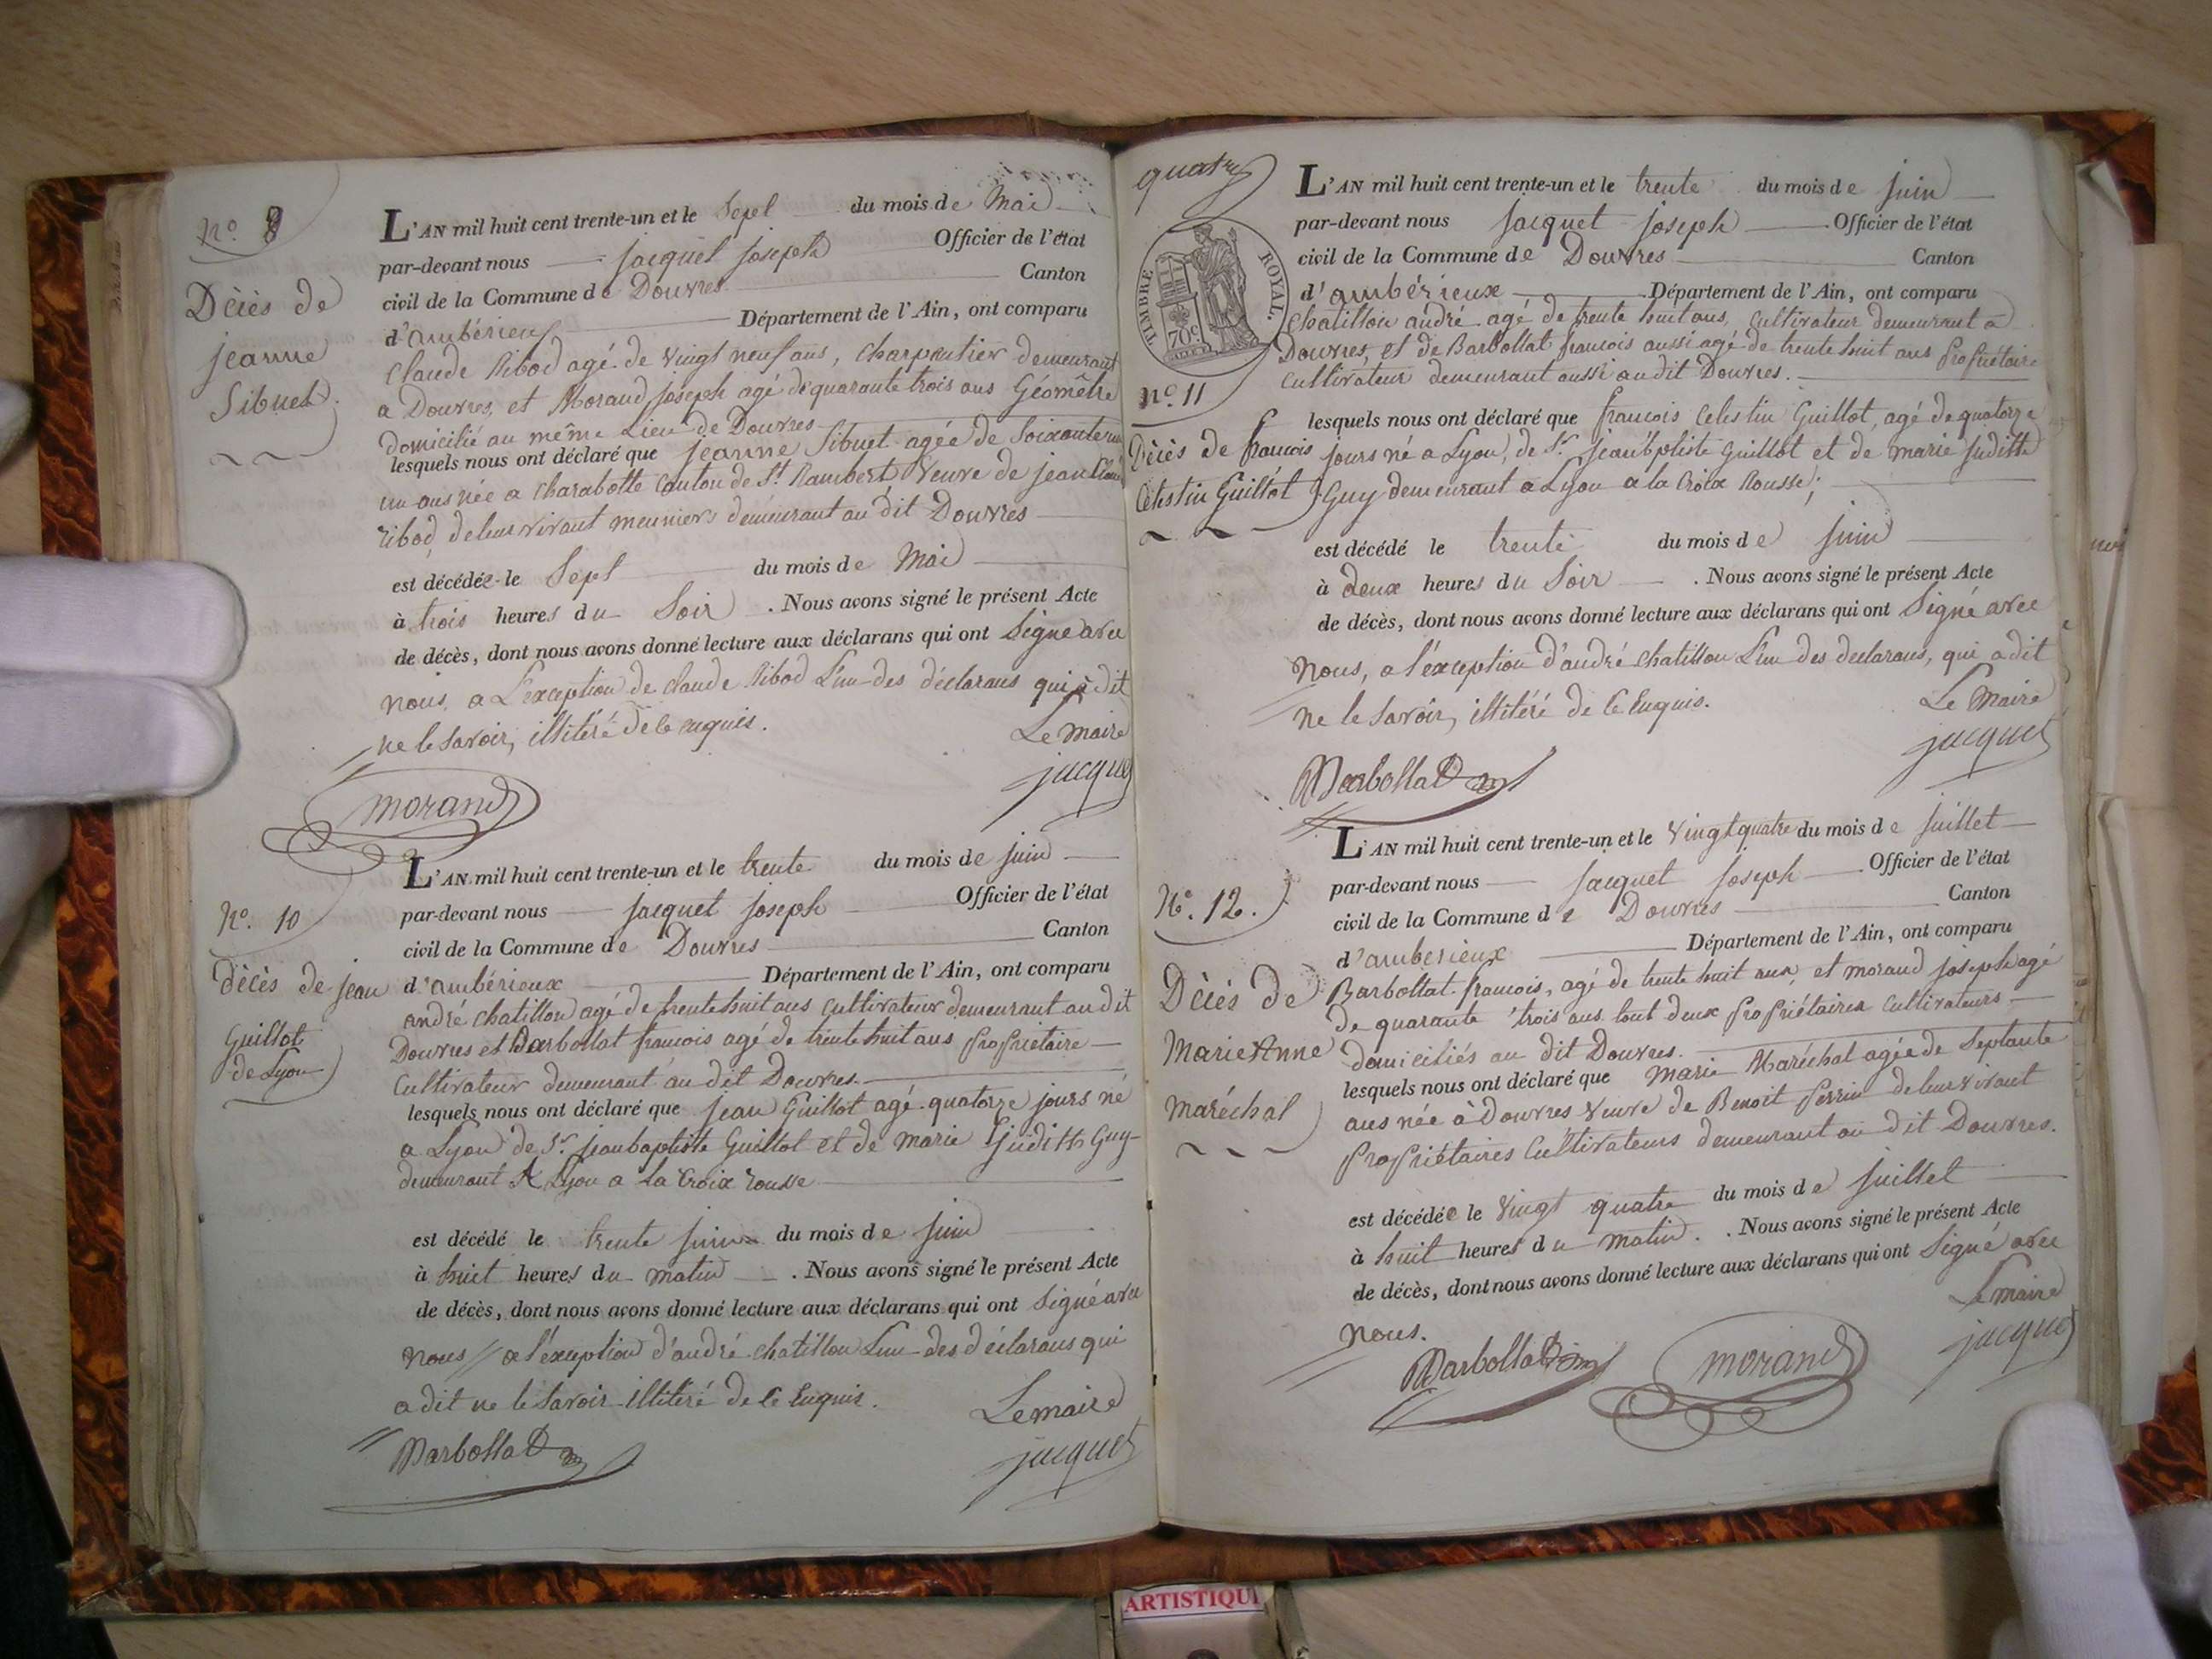 N.o 9
Décès de
jeanne
Sibuet.
L'AN mil huit cent trente-un et le Sept du mois de Mai
par-devant nous jacquet joseph Officier de l'état
civil de la Commune de Douvres Canton
d'ambérieux Département de l'Ain, ont comparu
Claude Ribod agé de vingt neuf ans, Charpentier demeurant
a Douvres, et Morand Joseph agé de quarante trois ans Géomêtre
domicilié au même Lieu de Douvres
lesquels nous ont déclaré que jeanne Sibuet agée de Soixante
un ans née a Charabotte Canton de St. Rambert Veuve de jean
ribod, de leur vivant meuniers demeurant au dit Douvres
est décédée le Sept du mois de Mai
à trois heures du Soir . Nous avons signé le présent Acte
de décès, dont nous avons donné lecture aux déclarans qui ont Signé avec
nous, a L'exception de claude Ribod L'un des déclarans qui à dit
ne le Savoir, illitéré de ce enquis.
Le maire
jacquet
morand
N.o 10
Décès de jean
Guillot
de Lyon
L'AN mil huit cent trente-un et le trente du mois de juin
par-devant nous jacquet joseph Officier de l'état
civil de la Commune de Douvres Canton
d'ambérieux Département de l'Ain, ont comparu
andré chatillon agé de trente huit ans cultivateur demeurant au dit
Douvres et Barbollat francois agé de trente huit ans propriétaire
Cultivateur demeurant au dit Douvres.
lesquels nous ont déclaré que jean Guillot agé quatorze jours né
a Lyon de Sr. jean baptiste Guillot et de marie judith Guy
demeurant A Lyon a la Croix rousse
est décédé le trente juin du mois de juin
à huit heures du matin . Nous avons signé le présent Acte
de décès, dont nous avons donné lecture aux déclarans qui ont Signé avec
nous // a l'exception d'andré chatillon L'un des déclarans qui
a dit ne le Savoir illitéré de ce Enquis.
Le maire
jacquet
Barbollat
quatre
TIMBRE ROYAL.
70c.
n.o 11
Décès de francois
Célestin Guillot
L'AN mil huit cent trente-un et le trente du mois de juin
par-devant nous jacquet joseph Officier de l'état
civil de la Commune de Douvres Canton
d'ambérieux Département de l'Ain, ont comparu
Chatillon andré agé de trente huit ans, Cultivateur demeurant a
Douvres, et de Barbollat francois aussi agé de trente huit ans propriétaire
Cultivateur demeurant aussi au dit Douvres.
lesquels nous ont déclaré que francois Celestin Guillot, agé de quatorze
jours né a Lyon, de Sr. jean bptiste Guillot et de marie judith
Guy demeurant a Lyon a la Croix Rousse;
est décédé le trente du mois de juin
à deux heures du Soir . Nous avons signé le présent Acte
de décès, dont nous avons donné lecture aux déclarans qui ont Signé avec
nous, a l'éxception d'andré chatillon L'un des declarans, qui a dit
ne le Savoir, illitéré de ce Enquis.
Le Maire
jacquet
Barbollat
N.o 12.
Décès de
Marie Anne
Maréchal
L'AN mil huit cent trente-un et le vingt quatre du mois de juillet
par-devant nous jacquet joseph Officier de l'état
civil de la Commune de Douvres Canton
d'ambérieux Département de l'Ain, ont comparu
Barbollat francois, agé de trente huit ans, et morand joseph agé
de quarante trois ans tout deux propriétaires Cultivateurs
domiciliés au dit Douvres.
lesquels nous ont déclaré que marie Maréchal agée de Septante
ans née à Douvres Veuve de Benoit Perrin de leur vivant
propriétaires Cultivateurs demeurant au dit Douvres.
est décédée le vingt quatre du mois de juillet
à huit heures du matin. . Nous avons signé le présent Acte
de décès, dont nous avons donné lecture aux déclarans qui ont Signé avec
nous.
Le maire
jacquet
Barbollat
morand
ARTISTIQU